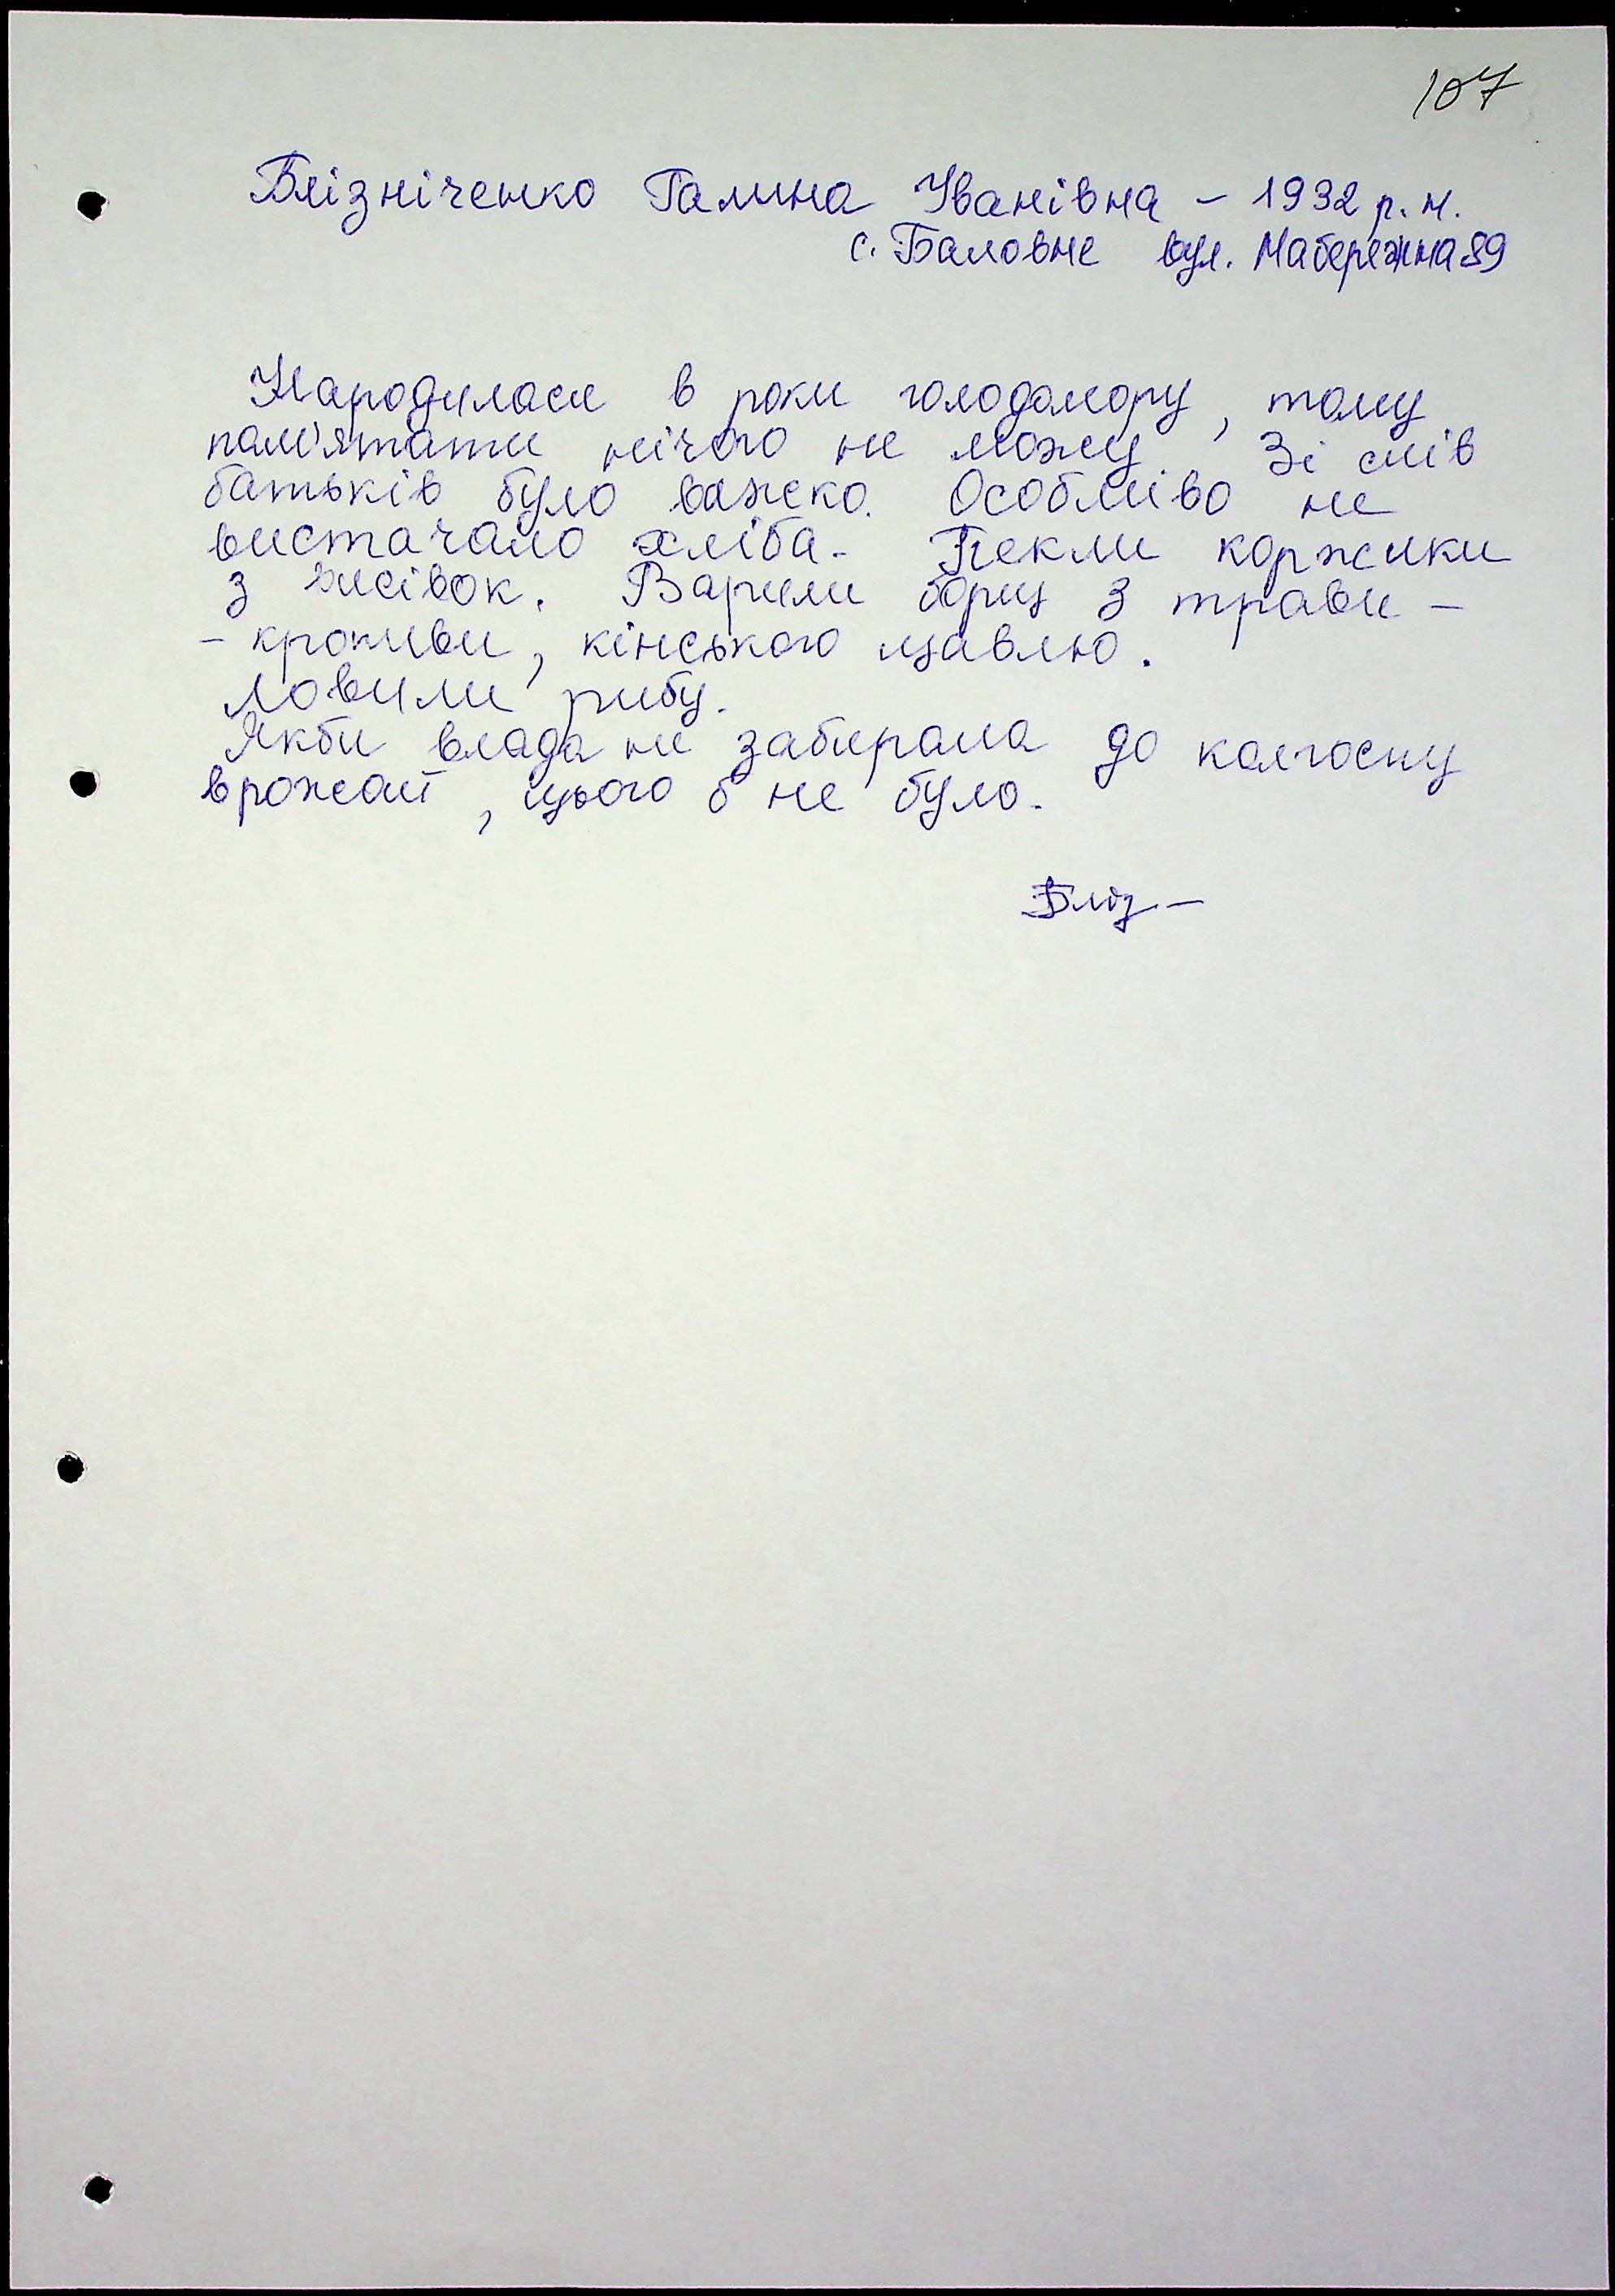 107
Блізніченко Галина Іванівна – 1932 р. н.
с. Баловне вул. Набережна 89
Народилася в роки голодомору, тому
пам'ятати нічого не можу. Зі слів
батьків було важко. Особливо не
вистачало хліба. Пекли коржики
з висівок. Варили борщ з трави –
– кропиви, кінського щавлю.
Ловили рибу.
Якби влада не забирала до колгоспу
врожаї, цього б не було.
Бліз–